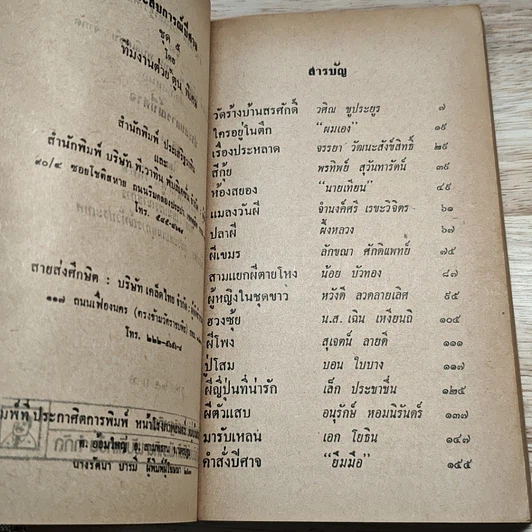 ชุด ๕
โดย
สำนักพิมพ์
และ
โทร.
สายส่งศึกษิต : บริษัท เคล็ดไทย จำกัด
๑๑๗ ถนนเฟื่องนคร (ตรงข้ามวัดราชบพิธ)
โทร.
สารบัญ
วัดร้างบ้านสรศักดิ์ วศิณ ชูประยูร ๗
ใครอยู่ในตึก "ผมเอง" ๑๙
เรื่องประหลาด จรรยา วัฒนะสังข์สิทธิ์ ๒๙
สีกุ้ย พรทิพย์ สุวันทารัตน์ ๓๙
ห้องสยอง "นายเทียน" ๔๙
แมลงวันผี จำนงค์ศรี เรขะวิจิตร ๖๑
ปลาผี ผึ้งหลวง ๖๗
ผีเขมร ลักขณา ศักดิแพทย์ ๗๕
สามแยกผีตายโหง น้อย บัวทอง ๘๗
ผู้หญิงในชุดขาว หวังดี ลวดลายเลิศ ๙๕
ฮวงซุ้ย น.ส. เฉิน เหงียนถิ ๑๐๕
ผีโพง สุเจตน์ ลายดี ๑๑๑
ปู่โสม บอน ใบบาง ๑๑๗
ผีญี่ปุ่นที่น่ารัก เล็ก ประชาชื่น ๑๒๕
ผีตัวแสบ อนุรักษ์ หอมนิรันดร์ ๑๓๗
มารับเหลน เอก โยธิน ๑๔๗
คำสั่งปีศาจ "ยิ้มมือ" ๑๕๕